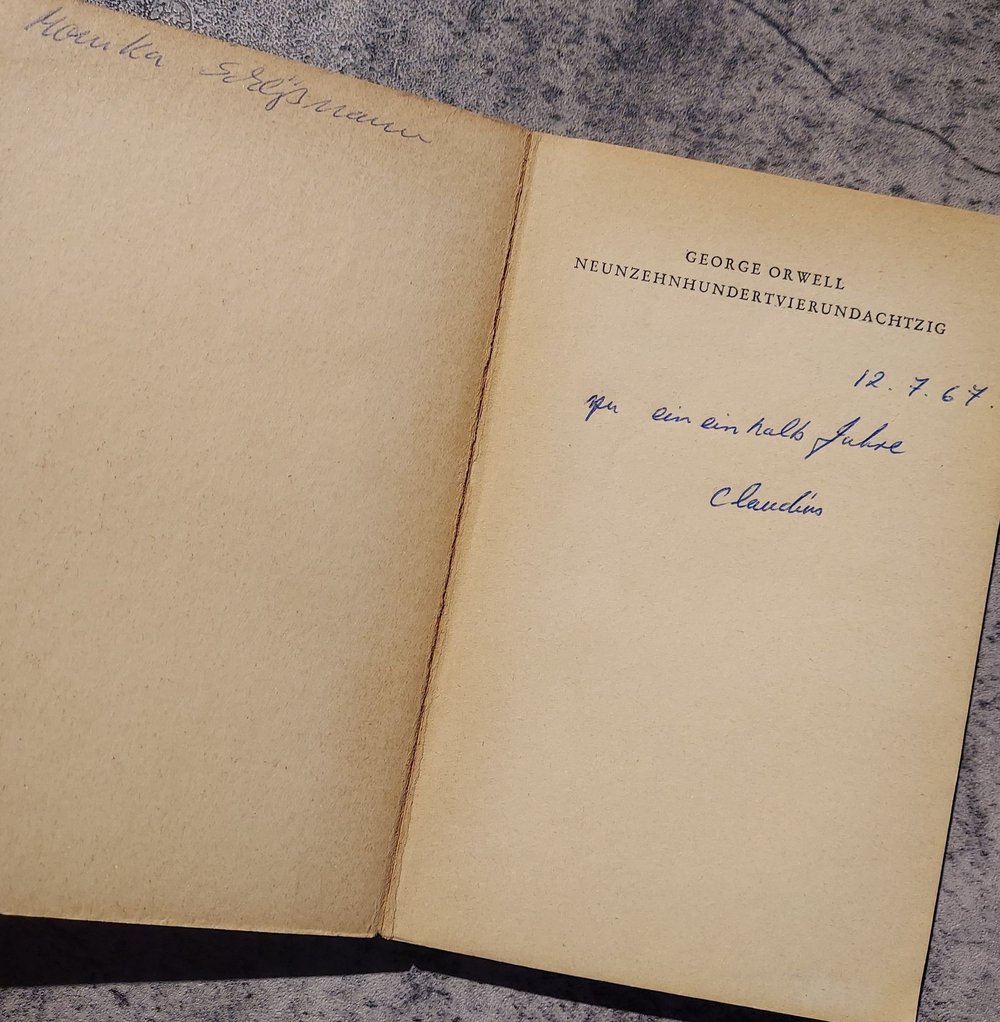 Monika
GEORGE ORWELL
NEUNZEHNHUNDERTVIERUNDACHTZIG
12.7.67.
zu ein ein halb Jahre
Claudius